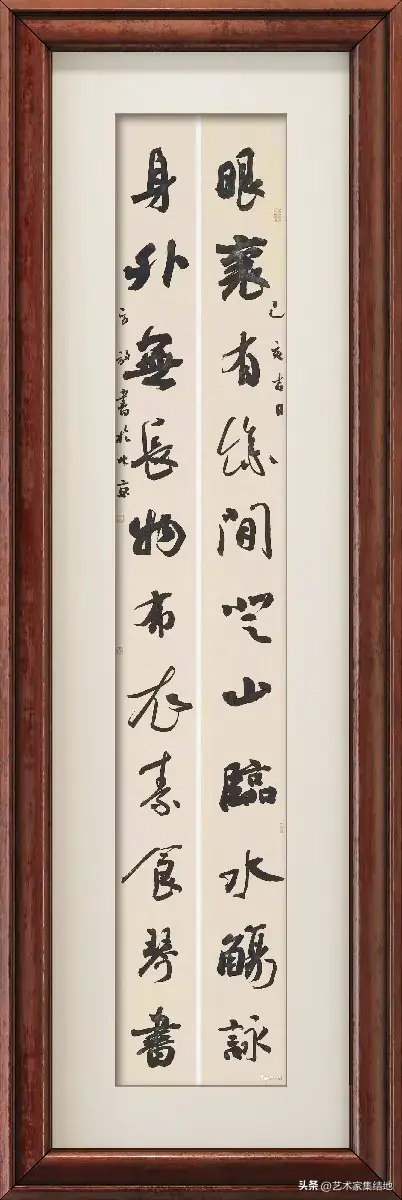 眼裏有餘間登山臨水觴詠
己亥吉日
身外無長物布衣素食琴書
書於北京
头条 @艺术家集结地